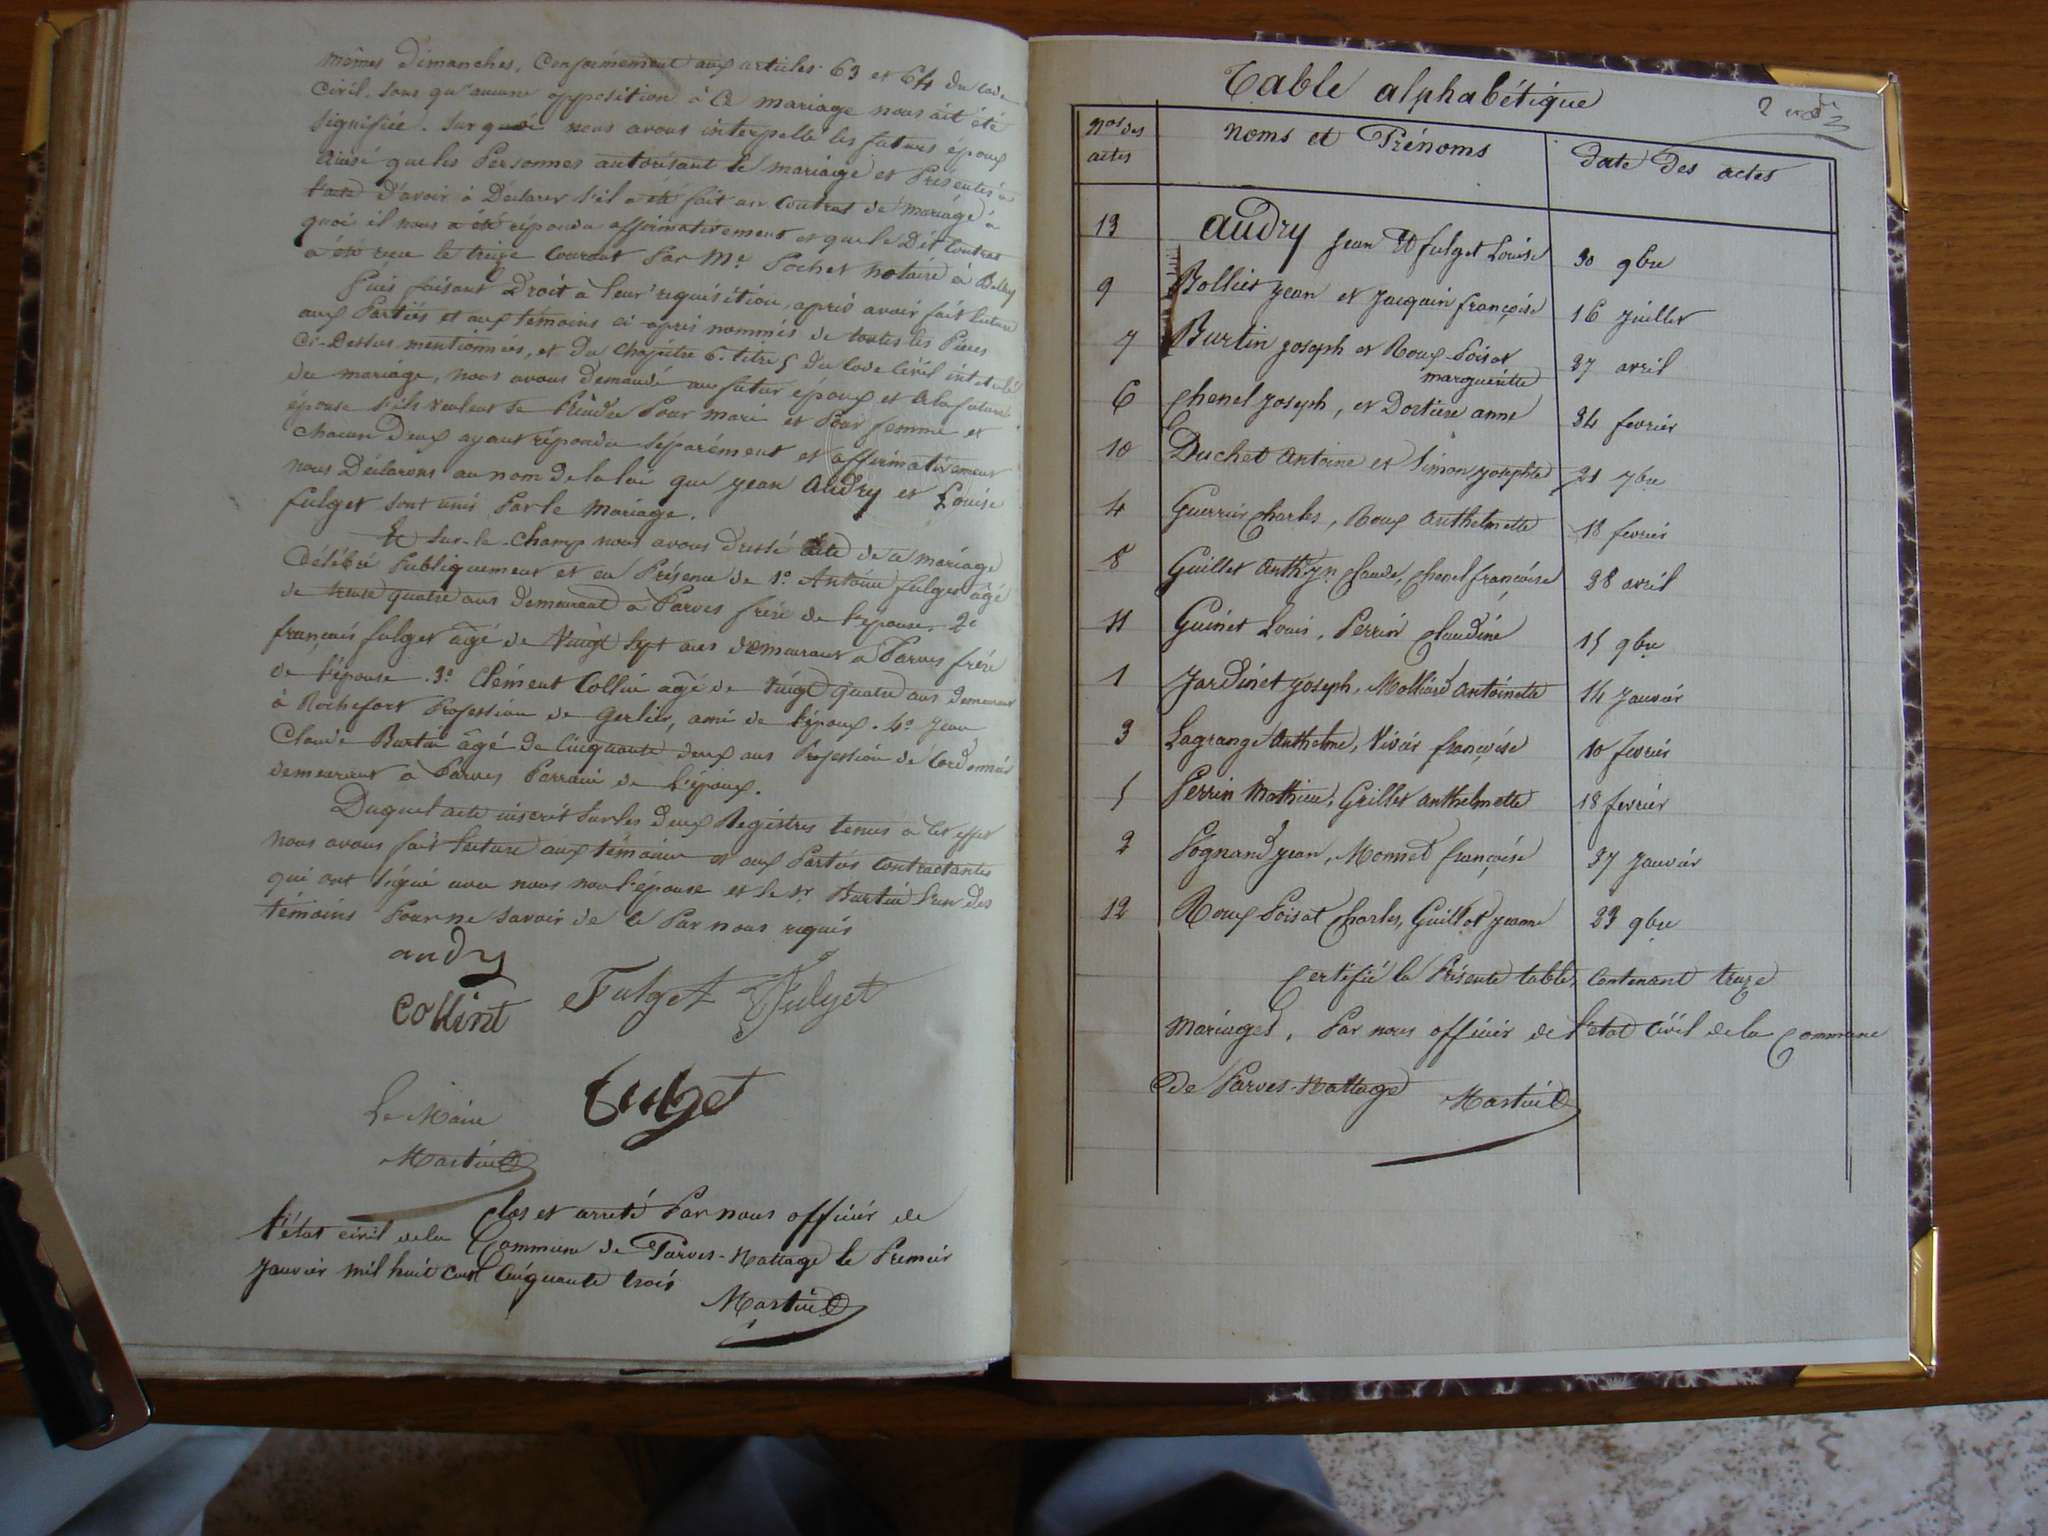 mêmes Dimanches, Conformément aux articles 63 et 64 du Code
Civil. Sans qu'aucune opposition à Ce mariage nous ait été
Signifiée. Sur quoi nous avons interpellé les futurs époux
Ainsi que les Personnes autorisant le mariage et Présentes à
l'acte D'avoir à Déclarer s'il a été fait un Contrat de Mariage à
quoi il nous a été répondu affirmativement et que le Dit Contrat
a été reçu le treize Courant Par Me Pochet notaire à Belley
Puis faisant Droit à leur réquisition, après avoir fait lecture
aux Parties et aux témoins ci après nommés de toutes les Pièces
Ci-Dessus mentionnées, et du Chapitre 6. titre 5 du Code Civil intitulé
du mariage, nous avons Demandé au futur époux et à la future
épouse s'ils veulent se Prendre Pour mari et Pour femme et
Chacun D'eux ayant répondu Séparément et affirmativement
nous Déclarons au nom De la loi que jean Audry et Louise
fulget Sont unis Par le Mariage.
Et Sur-le-Champ nous avons Dressé Acte de ce mariage
Célébré Publiquement et en Présence de 1° Antoine fulget âgé
de trente quatre ans Demeurant à Parves frère de l'épouse. 2°
français fulget âgé de Vingt Sept ans Demeurant à Parves frère
de l'épouse. 3° Clément Collin âgé de Vingt quatre ans Demeurant
à Rochefort Profession de Gerlier, ami de l'époux. 4° Jean
Claude Burtin âgé De Cinquante deux ans Profession de Cordonnier
demeurant à Parves Parrain de l'époux.
Duquel acte inscrit Sur les Deux Registres tenus à Cet effet
Nous avons fait lecture aux témoins et aux Parties Contractantes
qui ont Signé avec nous non l'épouse et le Sr Burtin l'un Des
témoins Pour ne Savoir de ce Par nous requis
audry
Collint Fulget Fulget
Le Maire Fulget
Martin
Clos et arrêté Par nous officier de
l'état civil de la Commune de Parves-Nattage le Premier
Janvier mil huit Cent Cinquante trois
Table alphabétique
Nos des actes Noms et Prénoms Date Des actes
13 Audry Jean et fulget Louise 30 9bre
9 Bollier jean et jacquin françoise 16 juillet
7 Burtin joseph et Roux-Poisat
marguerite 27 avril
6 Chenel joseph, et Dortiere anne 24 fevrier
10 Duchet Antoine et Simon josephte 21 7bre
4 Guerrier Charles, Roux Anthelmette 18 fevrier
8 Guillet Claude, Chenel françoise 28 avril
11 Guinet Louis, Perrin Claudine 15 9bre
1 Jardinet joseph, Molliard Antoinette 14 Janvier
3 Lagrange Anthelme, Vivier françoise 10 fevrier
5 Perrin Mathieu, Grillet anthelmette 18 fevrier
2 Pognand jean, Monnet françoise 27 Janvier
12 Roux-Poisat Charles, Guillot jeanne 23 9bre
Certifié la Présente table, Contenant treize
Mariages, Par nous officier de l'état Civil de la Commune
de Parves-Nattage